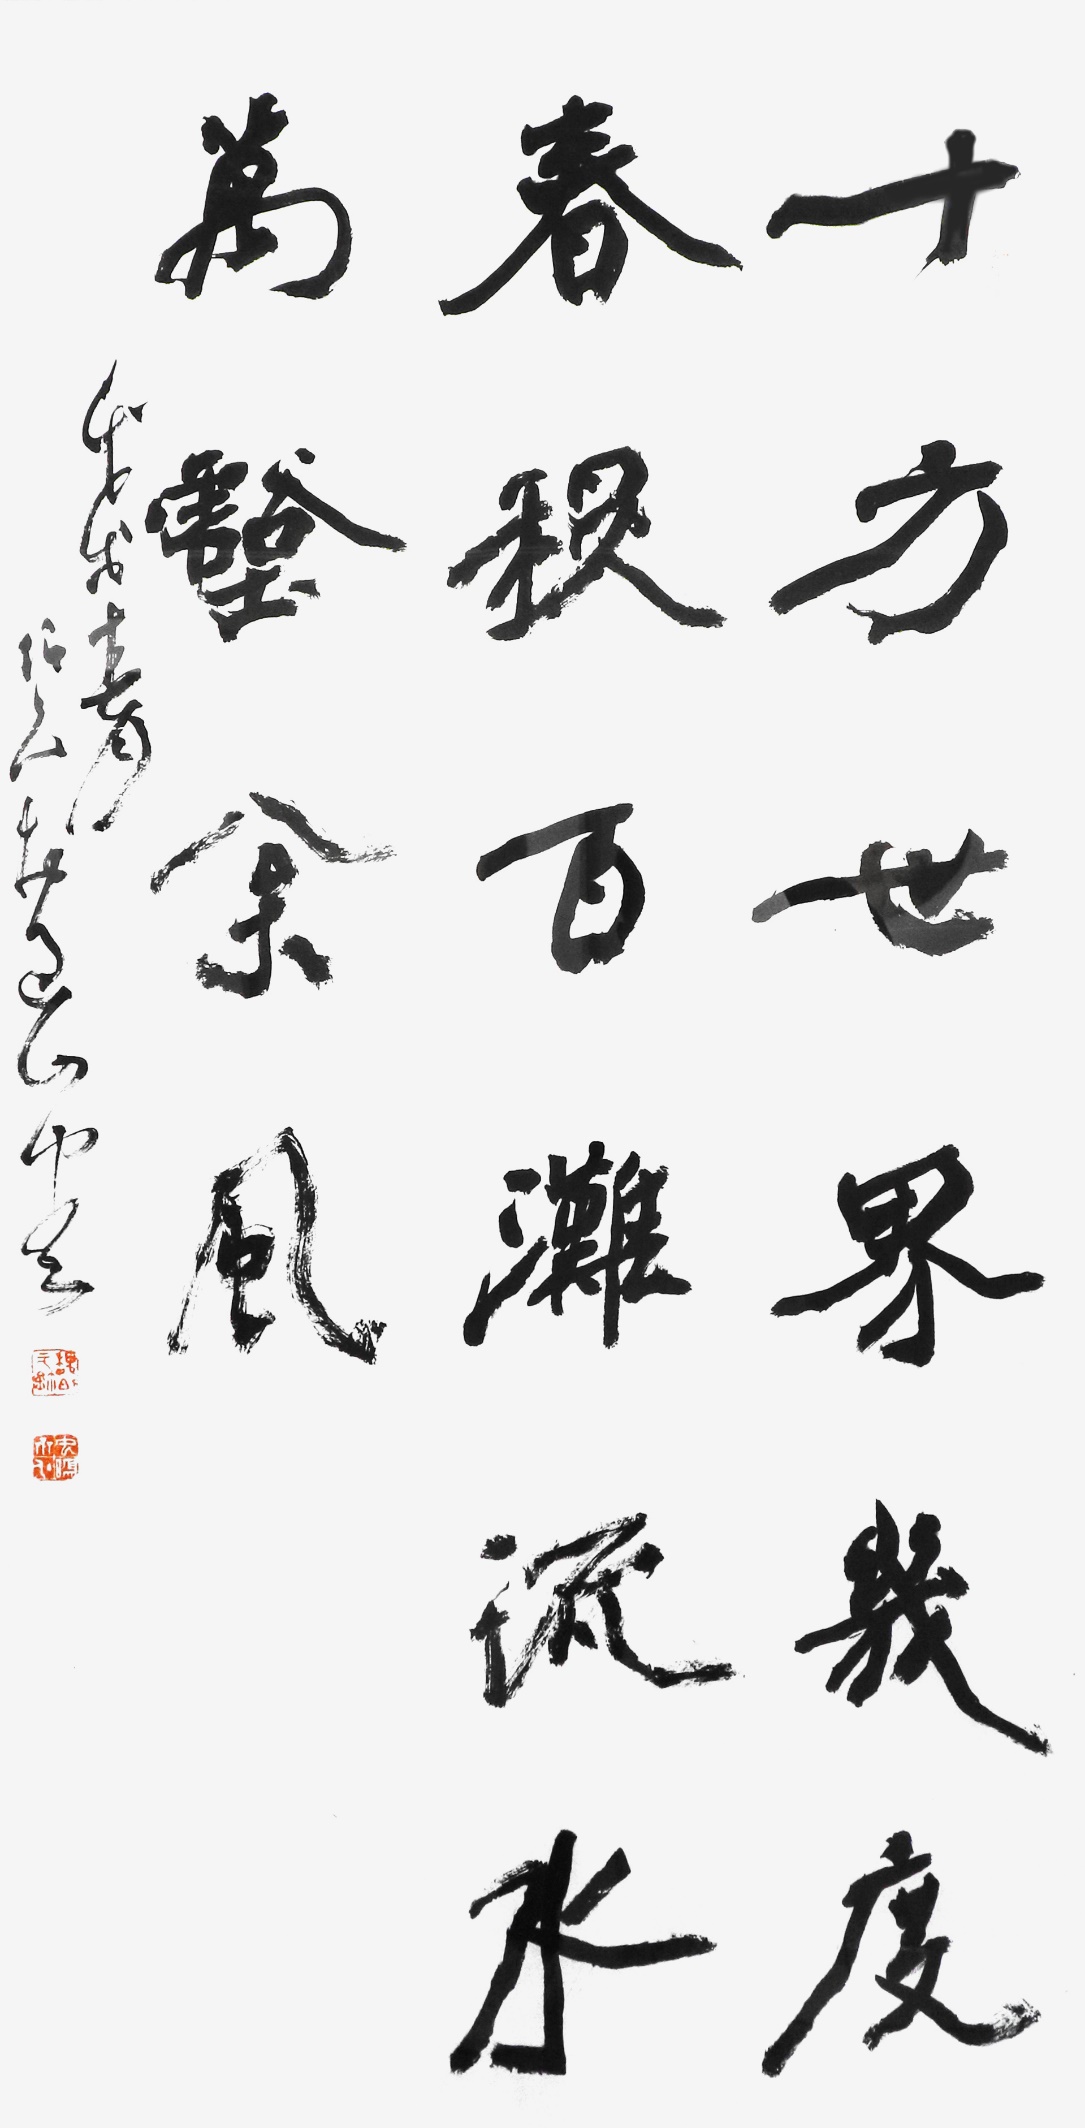 十方世界幾度
春秋百灘流水
萬壑余風